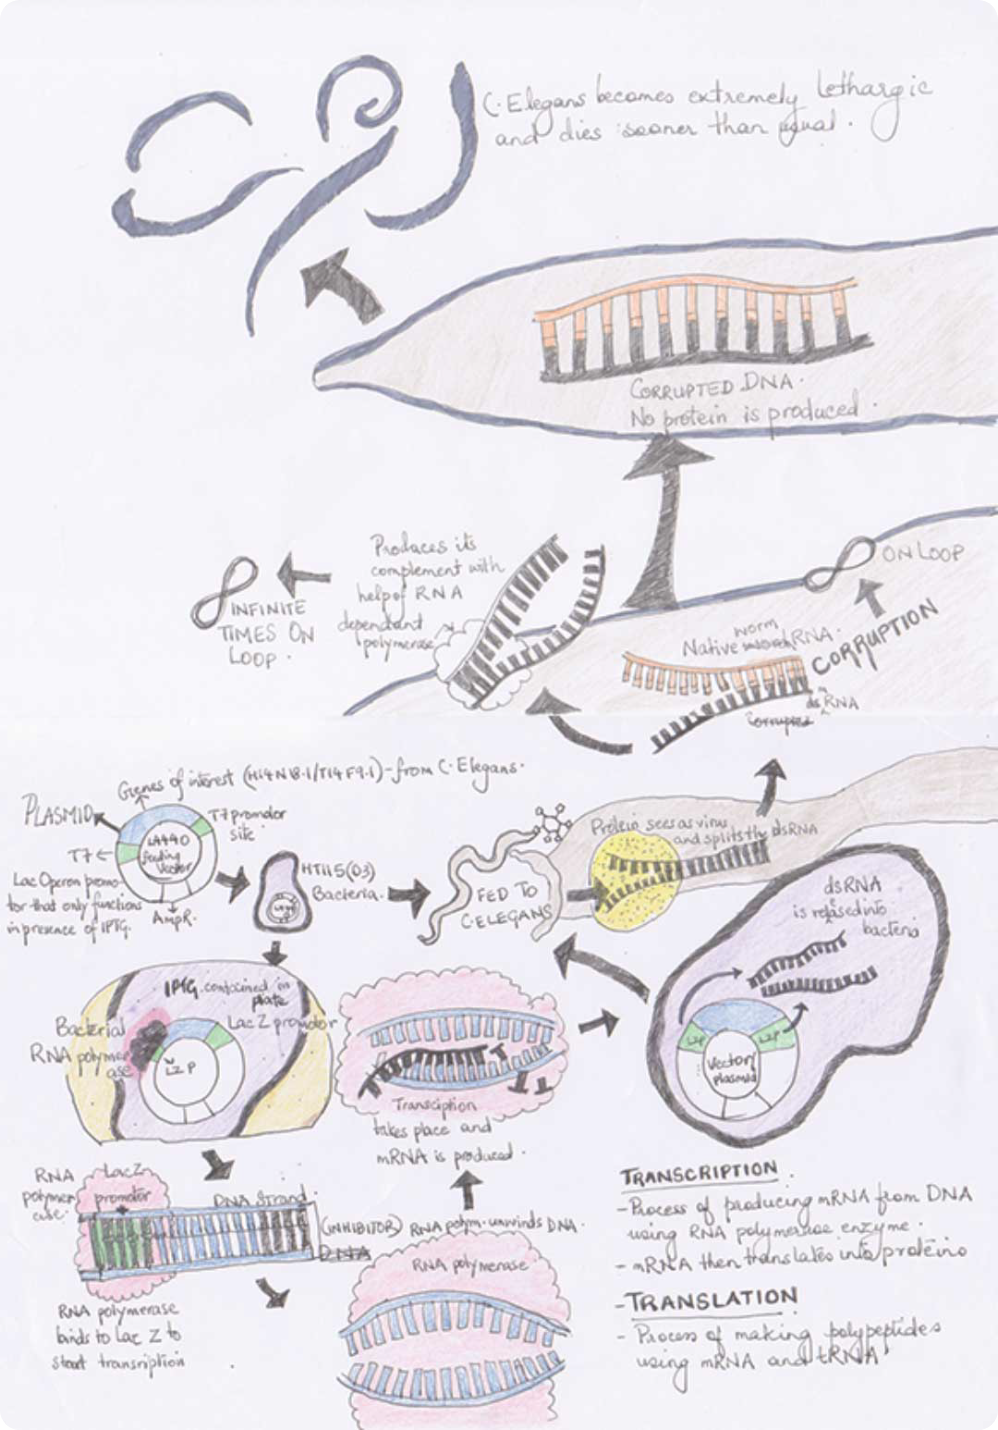 C. Elegans becomes extremely Lethargic
and dies sooner than usual.
CORRUPTED DNA.
No protein is produced.
Produces its
complement with
help of RNA
dependant
polymerase
INFINITE
TIMES ON
LOOP.
ON LOOP
CORRUPTION
worm
Native RNA.
dsRNA
corrupted
Genes of interest (H14N18.1/T14F9.1) - from C. Elegans.
PLASMID
T7 promoter
site.
L4440
feeding
vector
T7
Lac Operon promo-
tor that only functions
in presence of IPTG.
AmpR.
HT115(D3)
Bacteria.
FED TO
C.ELEGANS
Protein sees as virus
and splits the dsRNA
dsRNA
is released into
bacteria
LZP
LZP
Vector/
plasmid
IPTG contained in
plate
Lac Z promotor
Bacterial
RNA polymer
ase
LZP
Transciption
takes place and
mRNA is produced.
RNA
polymer
ase.
Lac Z
promotor
DNA strand.
(INHIBITOR)
DNA
RNA polymerase
binds to Lac Z to
start transription
RNA polym. unwinds DNA.
RNA polymerase
TRANSCRIPTION
- Process of producing mRNA from DNA
using RNA polymerase enzyme.
- mRNA then translates into proteins
- TRANSLATION
- Process of making polypeptides
using mRNA and tRNA